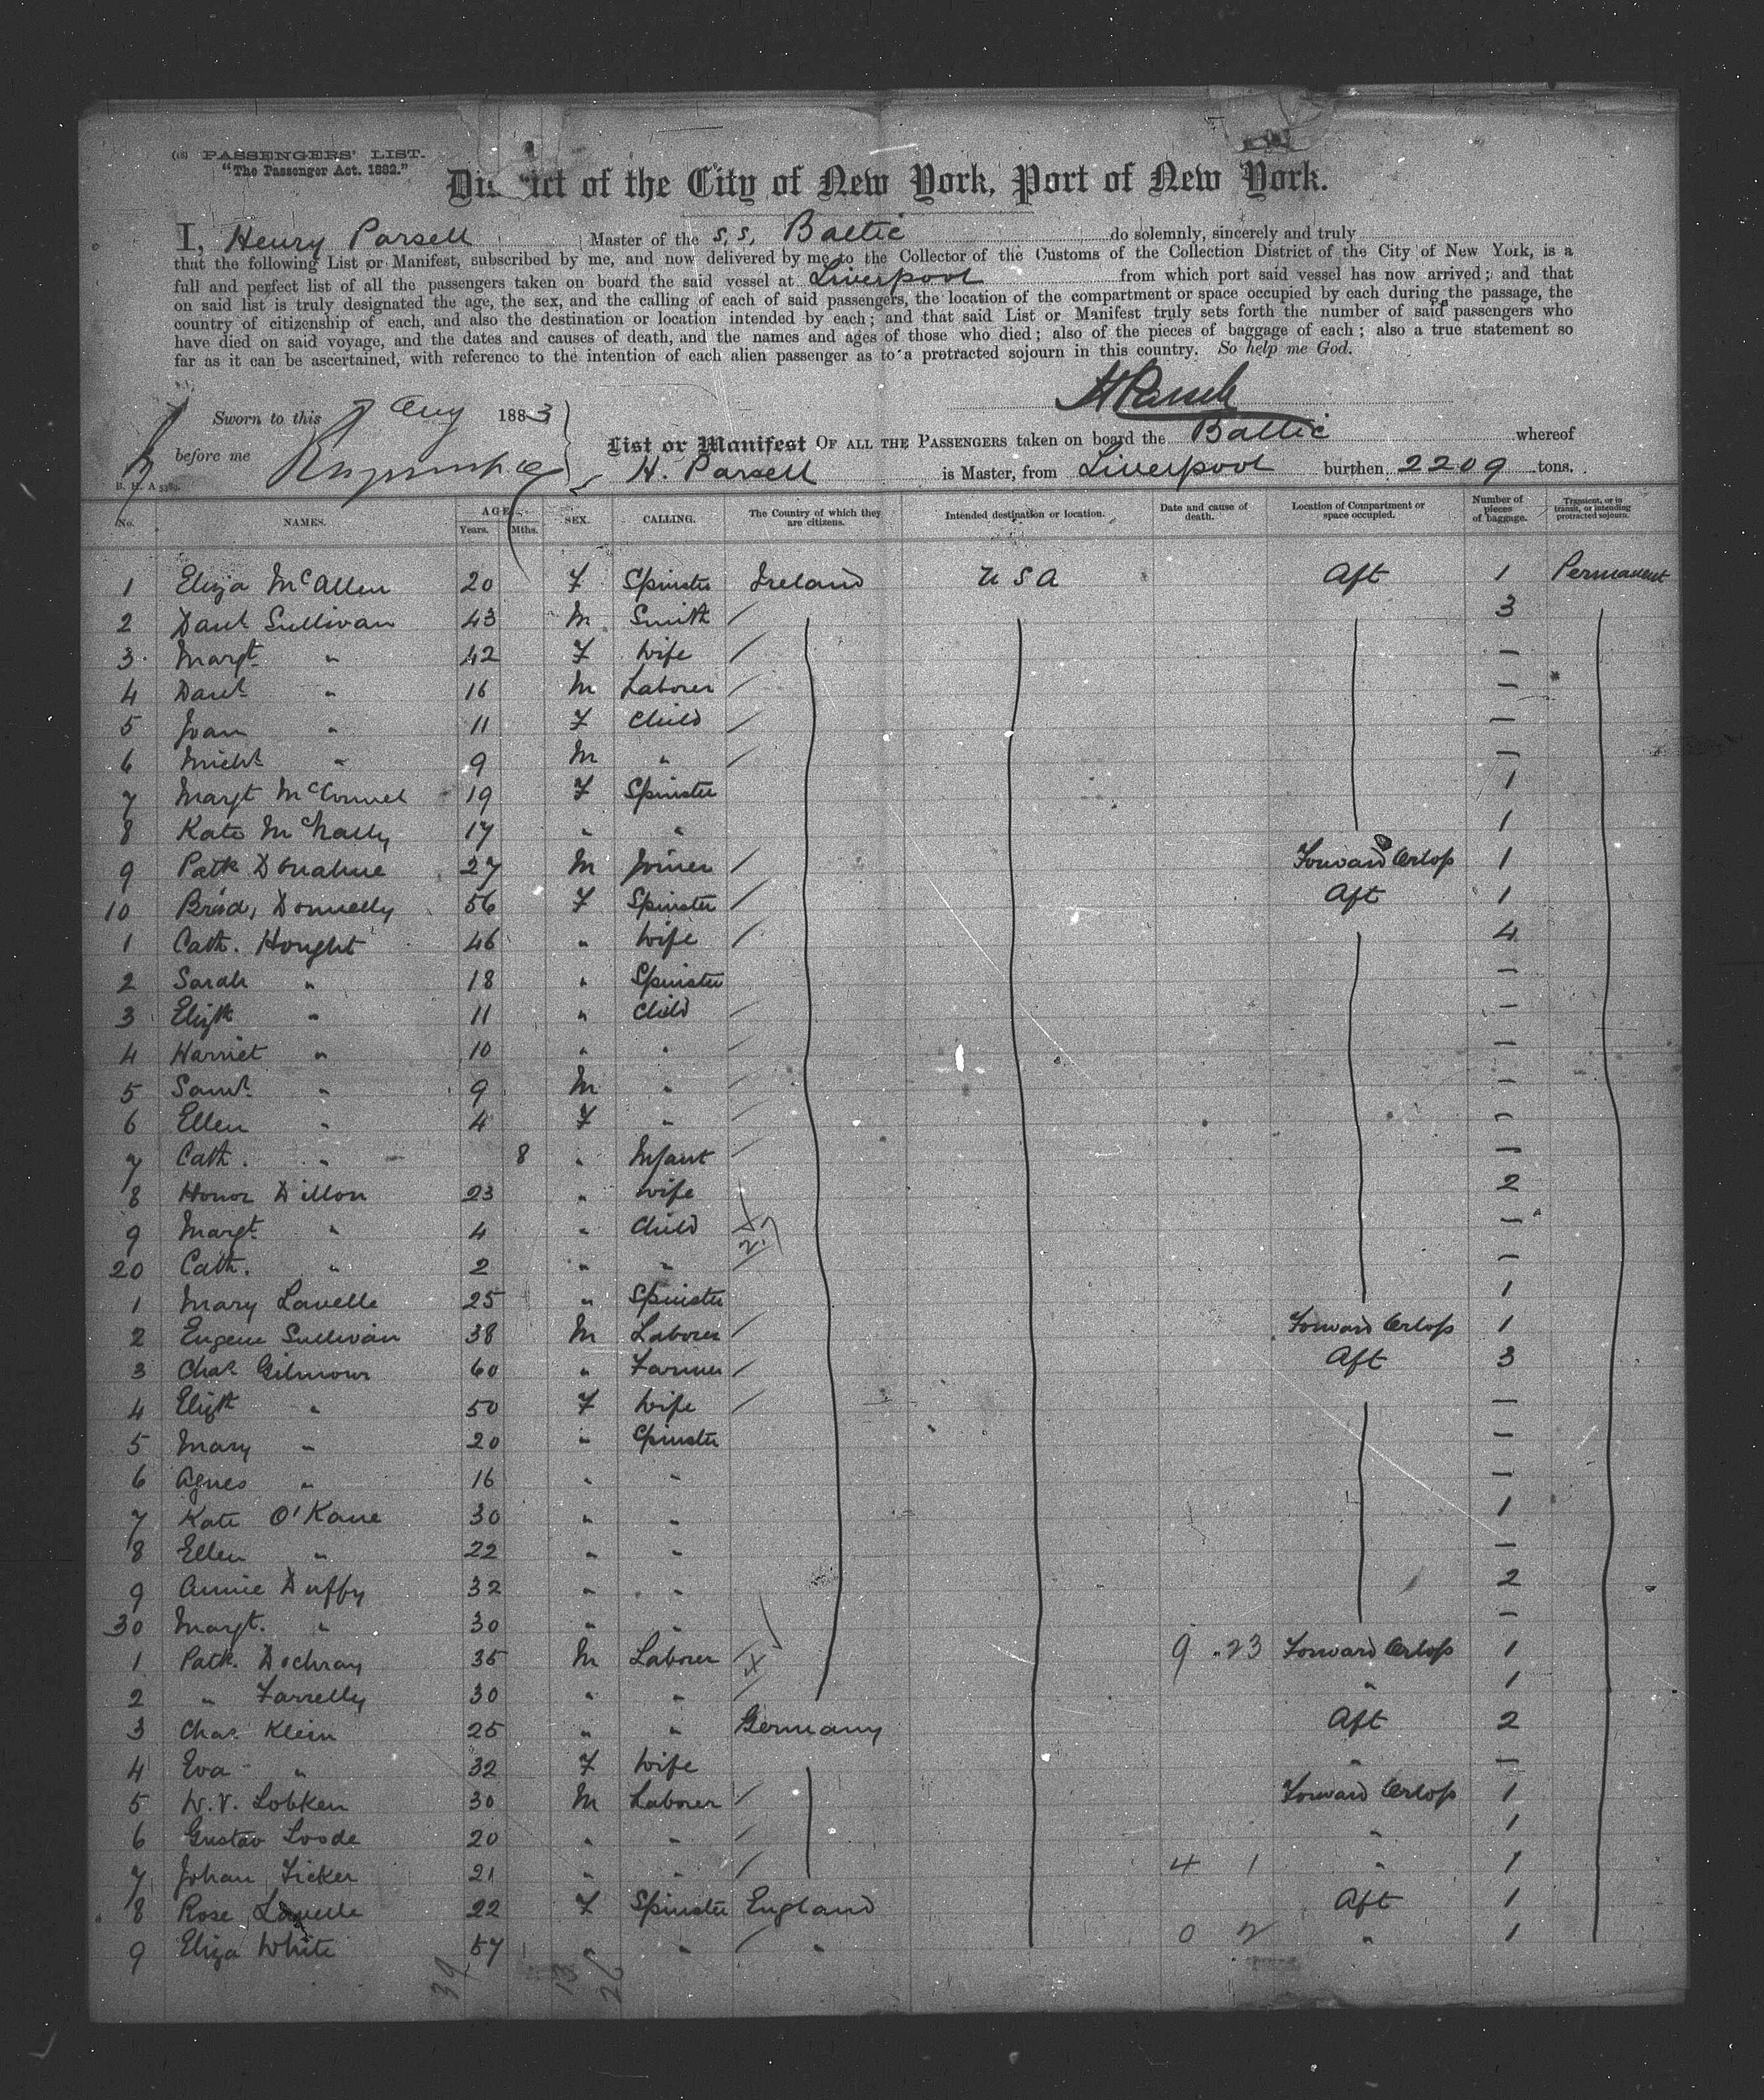 (18) PASSENGERS' LIST.
"The Passenger Act. 1882."
District of the City of New York, Port of New York.
I, Henry Parsell Master of the S.S. Baltic do solemnly, sincerely and truly
that the following List or Manifest, subscribed by me, and now delivered by me to the Collector of the Customs of the Collection District of the City of New York, is a
full and perfect list of all the passengers taken on board the said vessel at Liverpool from which port said vessel has now arrived; and that
on said list is truly designated the age, the sex, and the calling of each of said passengers, the location of the compartment or space occupied by each during the passage, the
country of citizenship of each, and also the destination or location intended by each; and that said List or Manifest truly sets forth the number of said passengers who
have died on said voyage, and the dates and causes of death, and the names and ages of those who died; also of the pieces of baggage of each; also a true statement so
far as it can be ascertained, with reference to the intention of each alien passenger as to a protracted sojourn in this country. So help me God.
HParsell
Sworn to this 7 Aug 1883
before me
List or Manifest OF ALL THE PASSENGERS taken on board the Baltic whereof
H. Parsell is Master, from Liverpool burthen 2209 tons.
No. NAMES. AGE. Years. Mths. SEX. CALLING. The Country of which they are citizens. Intended destination or location. Date and cause of death. Location of Compartment or space occupied. Number of pieces of baggage. Transient, or in transit, or intending protracted sojourn.
1 Eliza McAllen 20 F Spinster Ireland USA Aft 1 Permanent
2 Danl Sullivan 43 M Smith / 3
3 Margt " 42 F Wife / —
4 Danl " 16 M Laborer / —
5 Joan " 11 F Child / —
6 Michl " 9 M " / —
7 Margt McConnel 19 F Spinster 1
8 Kate McNally 17 " " 1
9 Patk Donahue 27 M Joiner / Forward Orlop 1
10 Brid, Donnelly 56 F Spinster / Aft 1
1 Cath. Hought 46 " Wife / 4
2 Sarah " 18 " Spinster —
3 Elizth " 11 " Child / —
4 Harriet " 10 " " / —
5 Saml " 9 M " / —
6 Ellen " 4 F " / —
7 Cath. " 8 " Infant / —
8 Honor Dillon 23 " Wife 2
9 Margt " 4 " Child —
20 Cath. " 2 " " —
1 Mary Lavelle 25 " Spinster 1
2 Eugene Sullivan 38 M Laborer / Forward Orlop 1
3 Chas Gilmour 60 " Farmer / Aft 3
4 Elizth " 50 F Wife / —
5 Mary " 20 " Spinster —
6 Agnes " 16 " " —
7 Kate O'Kane 30 " " 1
8 Ellen " 22 " " —
9 Annie Duffy 32 " " 2
30 Margt. " 30 " " —
1 Patk. Dochray 35 M Laborer / 9 . 23 Forward Orlop 1
2 " Farrelly 30 " " / " 1
3 Chas Klein 25 " " Germany Aft 2
4 Eva " 32 F Wife " —
5 W.V. Lobken 30 M Laborer / Forward Orlop 1
6 Gustav Loode 20 " " / " 1
7 Johan Ficker 21 " " / 4 1 " 1
8 Rose Lavelle 22 F Spinster England Aft 1
9 Eliza White 57 " " / " 0 2 " 1
39 13 26